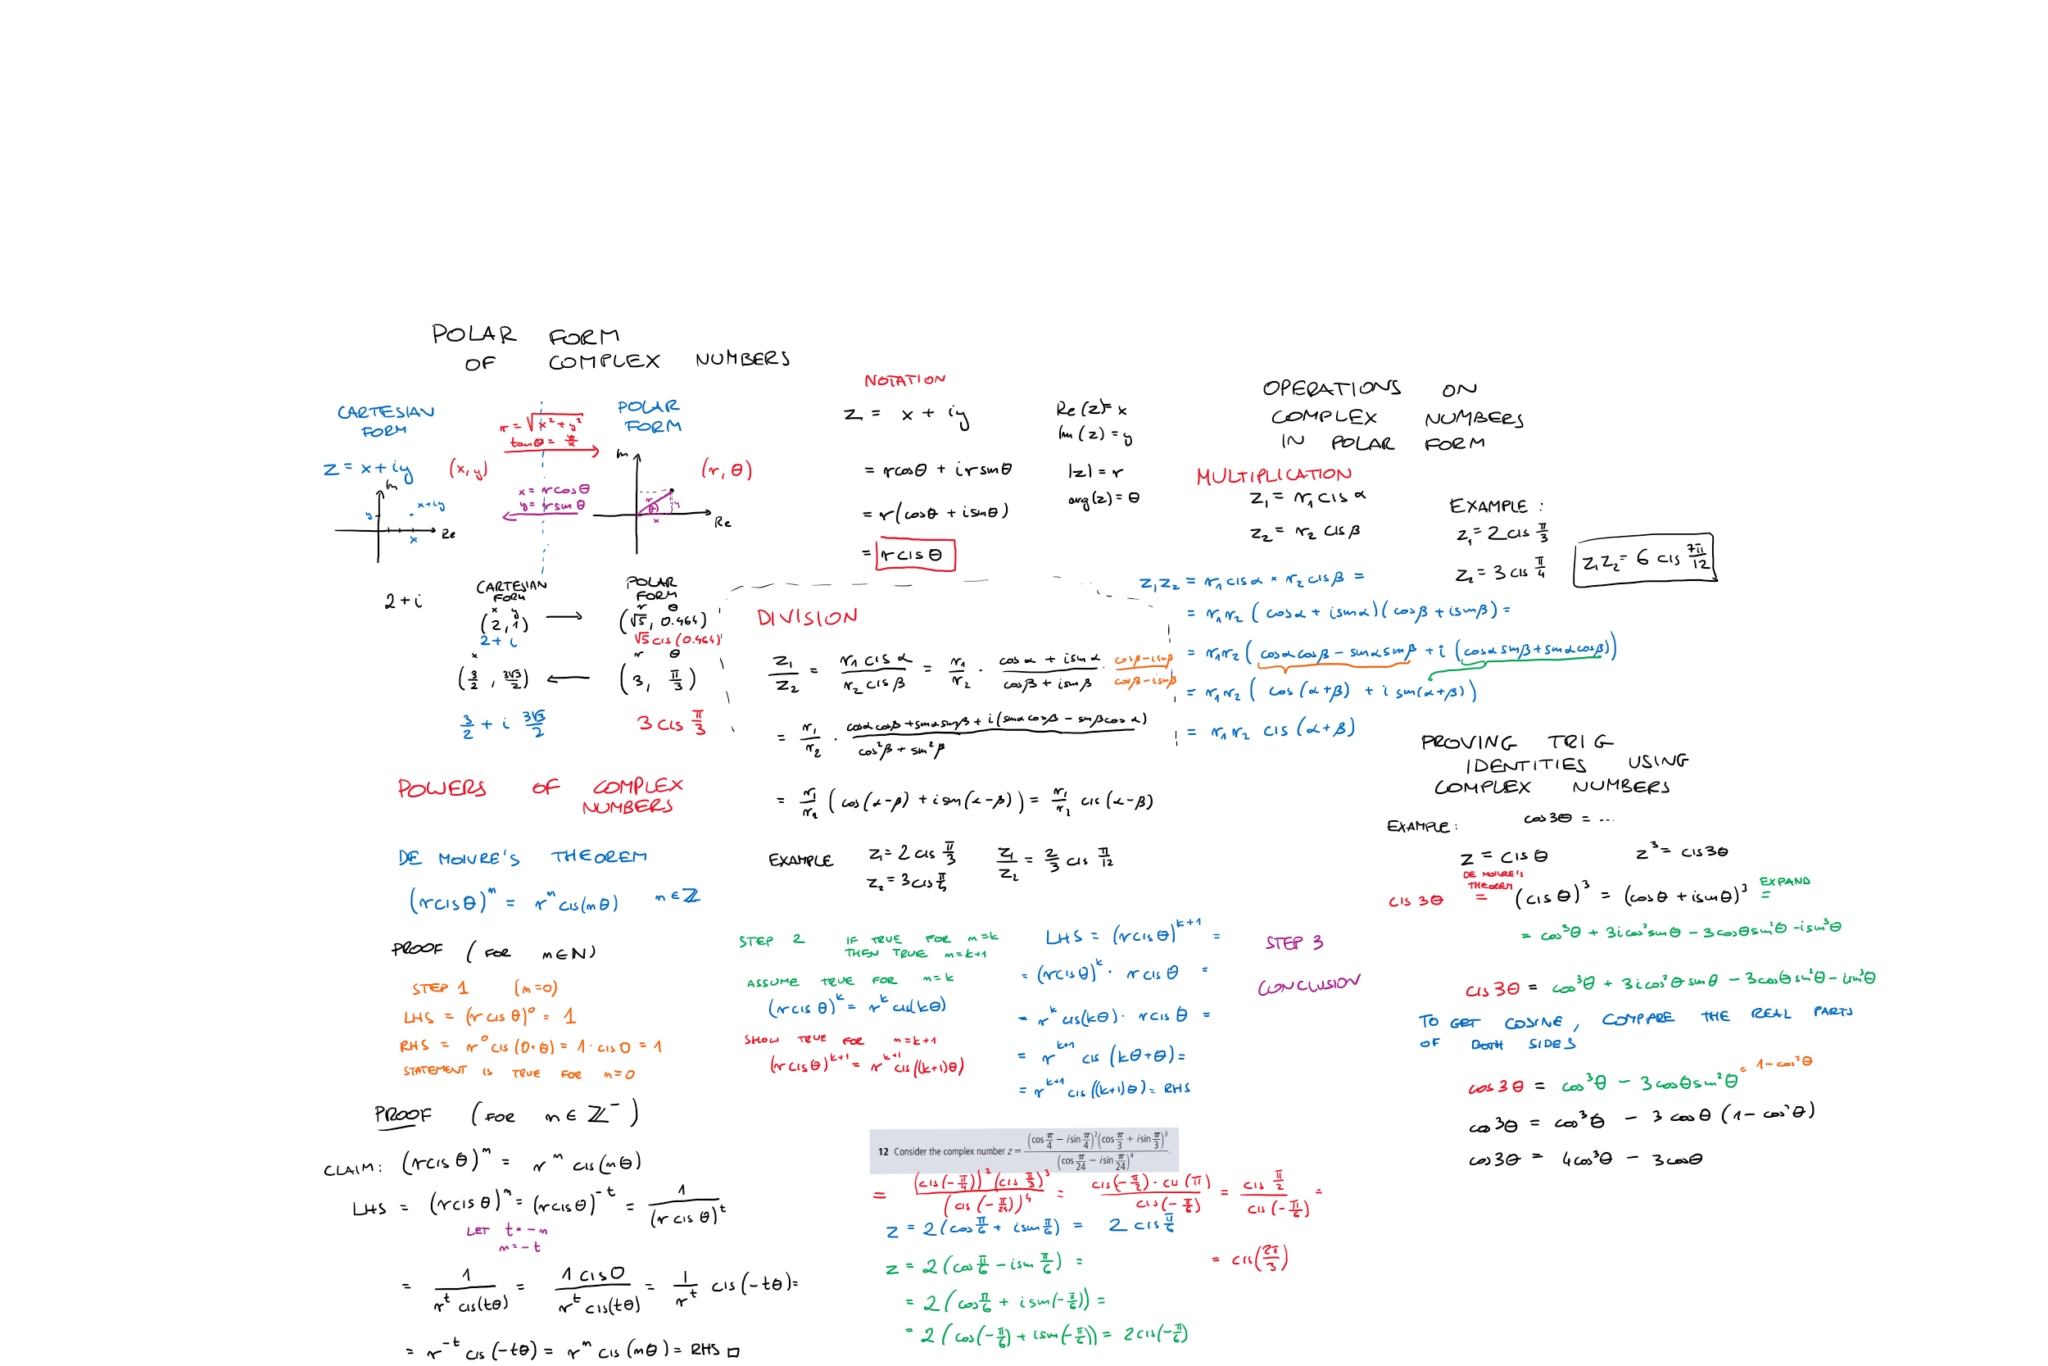 POLAR FORM
OF COMPLEX NUMBERS
CARTESIAN
FORM
z = x + iy
(x, y)
Im
x+iy
y
x
Re
r = √(x² + y²)
x = r cos θ
y = r sin θ
POLAR
FORM
(r, θ)
Im
r
θ
y
x
Re
2 + i
CARTESIAN
FORM
x y
(2, 1) ⟶
2 + i
POLAR
FORM
r θ
(√5, 0.464)
√5 cis (0.464)
x
(3/2, 3√3/2) ⟵
3/2 + i 3√3/2
r θ
(3, π/3)
3 cis π/3
NOTATION
z = x + iy
= r cos θ + i r sin θ
= r (cos θ + i sin θ)
= r cis θ
Re (z) = x
Im (z) = y
|z| = r
arg (z) = θ
OPERATIONS ON
COMPLEX NUMBERS
IN POLAR FORM
MULTIPLICATION
z₁ = r₁ cis α
z₂ = r₂ cis β
EXAMPLE :
z₁ = 2 cis π/3
z₂ = 3 cis π/4
z₁z₂ = 6 cis 7π/12
z₁z₂ = r₁ cis α × r₂ cis β =
= r₁r₂ (cos α + i sin α)(cos β + i sin β) =
= r₁r₂ (cos α cos β − sin α sin β + i (cos α sin β + sin α cos β))
= r₁r₂ (cos (α+β) + i sin (α+β))
= r₁r₂ cis (α+β)
DIVISION
z₁/z₂ = r₁ cis α / r₂ cis β = r₁/r₂ · (cos α + i sin α)/(cos β + i sin β) · (cos β − i sin β)/(cos β − i sin β)
= r₁/r₂ · (cos α cos β + sin α sin β + i (sin α cos β − sin β cos α))/(cos²β + sin²β)
= r₁/r₂ (cos (α−β) + i sin (α−β)) = r₁/r₂ cis (α−β)
EXAMPLE
z₁ = 2 cis π/3
z₂ = 3 cis π/4
z₁/z₂ = 2/3 cis π/12
POWERS OF COMPLEX
NUMBERS
DE MOIVRE'S THEOREM
(r cis θ)ⁿ = rⁿ cis (nθ) n ∈ ℤ
PROOF (FOR n ∈ N)
STEP 1 (n=0)
LHS = (r cis θ)⁰ = 1
RHS = r⁰ cis (0·θ) = 1 · cis 0 = 1
STATEMENT IS TRUE FOR n=0
STEP 2 IF TRUE FOR n=k
THEN TRUE n=k+1
ASSUME TRUE FOR n=k
(r cis θ)ᵏ = rᵏ cis (kθ)
SHOW TRUE FOR n=k+1
(r cis θ)ᵏ⁺¹ = rᵏ⁺¹ cis ((k+1)θ)
LHS = (r cis θ)ᵏ⁺¹ =
= (r cis θ)ᵏ · r cis θ =
= rᵏ cis (kθ) · r cis θ =
= rᵏ⁺¹ cis (kθ + θ) =
= rᵏ⁺¹ cis ((k+1)θ) = RHS
STEP 3
CONCLUSION
PROOF (FOR n ∈ ℤ⁻)
CLAIM: (r cis θ)ⁿ = rⁿ cis (nθ)
LHS = (r cis θ)ⁿ = (r cis θ)⁻ᵗ = 1/(r cis θ)ᵗ
LET t = −n
n = −t
= 1/(rᵗ cis (tθ)) = 1 cis 0/(rᵗ cis (tθ)) = 1/rᵗ cis (−tθ) =
= r⁻ᵗ cis (−tθ) = rⁿ cis (nθ) = RHS □
12 Consider the complex number z = (cos π/4 − i sin π/4)² (cos π/3 + i sin π/3)³ / (cos π/24 − i sin π/24)⁴.
= (cis (−π/4))² (cis π/3)³ / (cis (−π/24))⁴ = cis (−π/2) · cis (π) / cis (−π/6) = cis π/2 / cis (−π/6) =
= cis (2π/3)
z = 2 (cos π/6 + i sin π/6) = 2 cis π/6
z = 2 (cos π/6 − i sin π/6) =
= 2 (cos π/6 + i sin (−π/6)) =
= 2 (cos (−π/6) + i sin (−π/6)) = 2 cis (−π/6)
PROVING TRIG
IDENTITIES USING
COMPLEX NUMBERS
EXAMPLE: cos 3θ = ...
z = cis θ z³ = cis 3θ
DE MOIVRE'S
THEOREM
EXPAND
cis 3θ = (cis θ)³ = (cos θ + i sin θ)³ =
= cos³θ + 3i cos²θ sin θ − 3 cos θ sin²θ − i sin³θ
cis 3θ = cos³θ + 3i cos²θ sin θ − 3 cos θ sin²θ − i sin³θ
TO GET COSINE, COMPARE THE REAL PARTS
OF BOTH SIDES
= 1 − cos²θ
cos 3θ = cos³θ − 3 cos θ sin²θ
cos 3θ = cos³θ − 3 cos θ (1 − cos²θ)
cos 3θ = 4 cos³θ − 3 cos θ